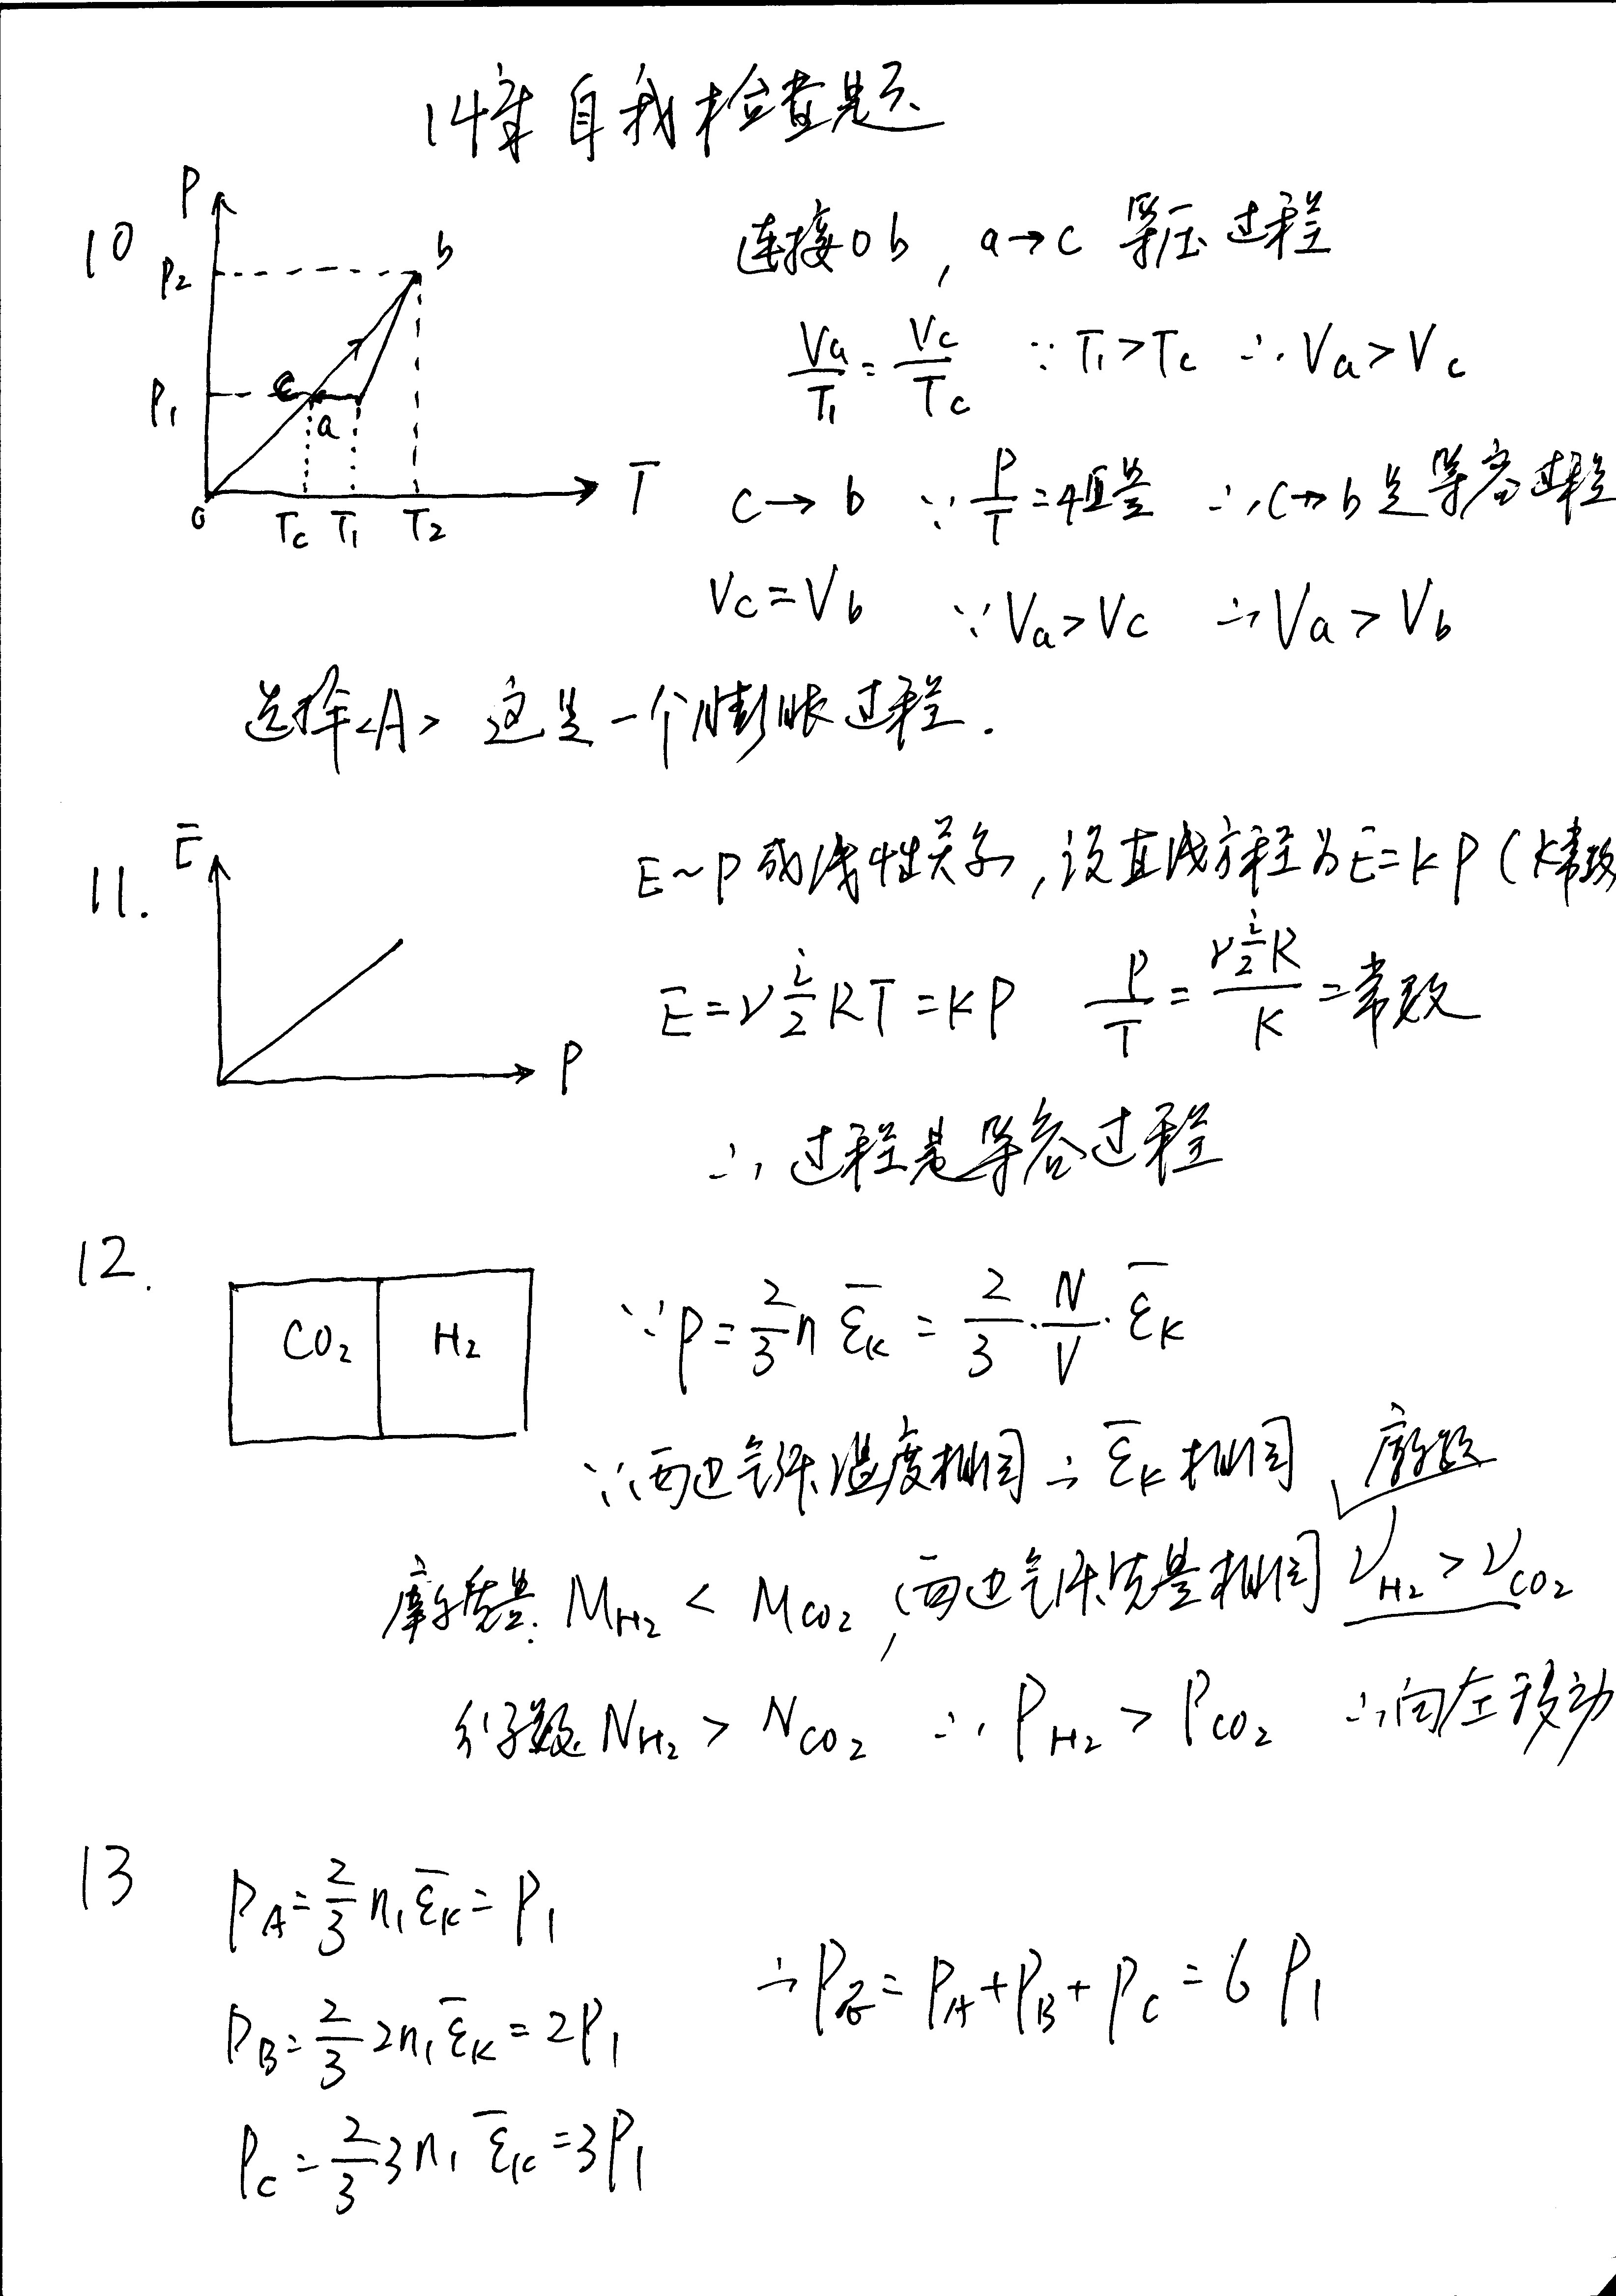 14章自我检查题
10
P
P2
b
P1
c
a
0
Tc T1 T2
T
连接0b，a→c 等压过程
Va/T1 = Vc/Tc ∵T1>Tc ∴Va>Vc
c→b ∵P/T=恒量 ∴c→b是等容过程
Vc=Vb ∵Va>Vc ∴Va>Vb
选择<A> 这是一个膨胀过程.
11.
E
P
E~P成线性关系，设直线方程为E=kP（k常数
E=ν i/2 RT=kP P/T = ν i/2 R / k =常数
∴过程是等容过程
12.
CO2 H2
∵P=2/3 n ε̄k = 2/3 · N/V · ε̄k
∵两边气体温度相同∴ε̄k相同 摩尔数
摩尔质量: MH2 < MCO2，两边气体质量相同 νH2 > νCO2
分子数 NH2 > NCO2 ∴PH2 > PCO2 ∴向左移动
13
PA=2/3 n1 ε̄k=P1
PB=2/3 2n1 ε̄k=2P1
PC=2/3 3n1 ε̄k=3P1
∴P总=PA+PB+PC=6P1